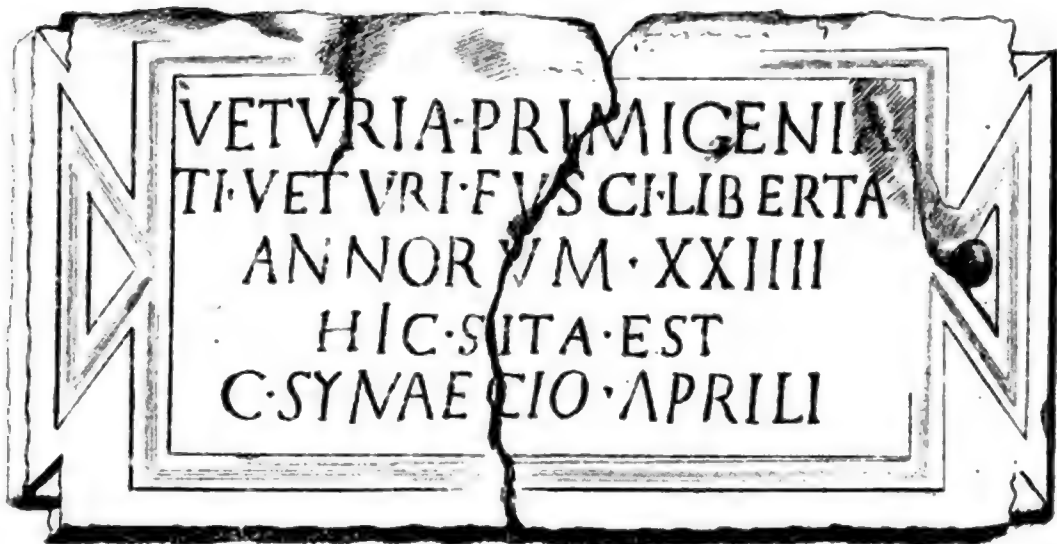 VETVRIA·PRIMIGENIA
TI·VETVRI·FVSCI·LIBERTA
ANNORVM·XXIIII
HIC·SITA·EST
C·SYNAECIO·APRILI